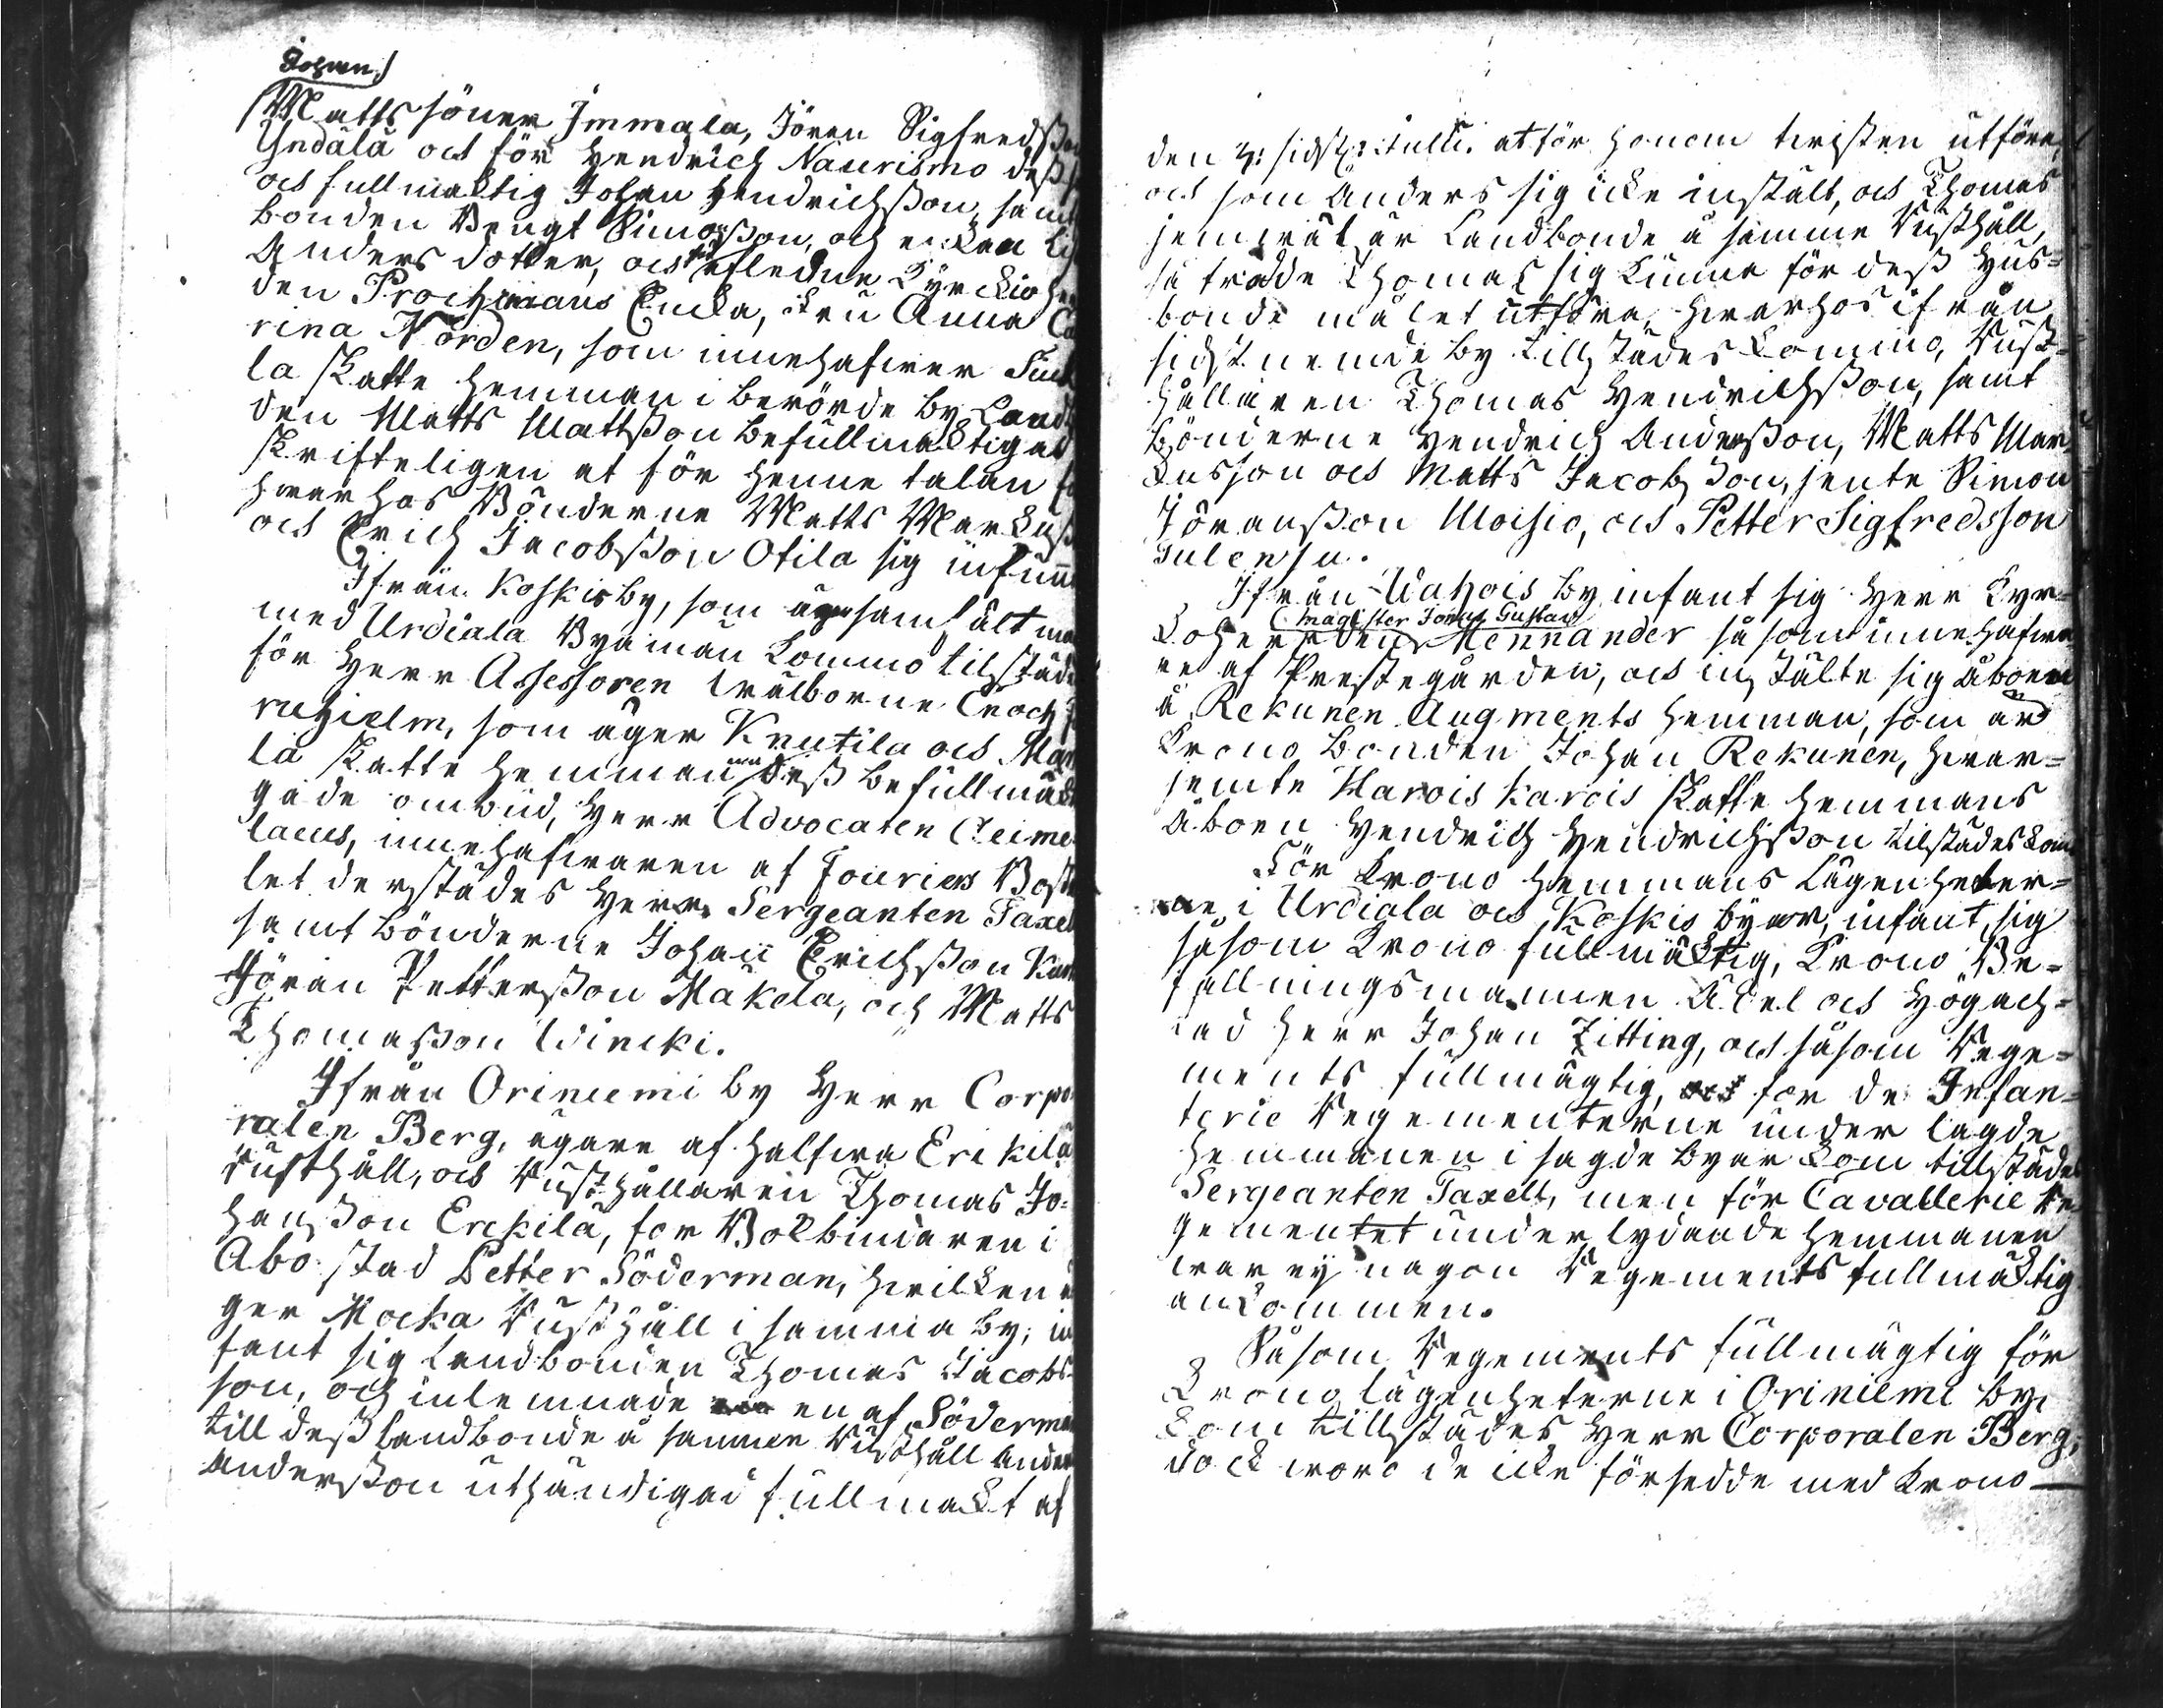 Johan
Matts söner Immala, Jören Sigfredsso
Yndälä och för Hendrich Naurismo dess
och fullmäktig Johan Hendrichsson, samt
bonden Bengt Simonsson, och enkan
Anders dotter, och afledne Kyrckio her
den Prochmans Encka, fru Anna Ca
rina Norden, som innehafwer
la Skatte hemman i berörde by Land
den Matts Mattsson befullmäktigat
skrifteligen at för henne talan
hwarhos Bönderne Matts Markuss
och Erich Jacobsson Otila sig infunn
Ifrån Koskis by, som äger samfält
med Urdiala Byamän kommo tilstäde
för Herr Assessoren Wälborne Enoch
ruhielm, som äger Knutila och Mar
la Skatte hemman dess befullmäk
gade ombud, Herr Advocaten Cleime
laeus, innehafwaren af Fouriers Bostä
let derstädes Herr Sergeanten Taxell
samt Bönderne Johan Erichsson
Jöran Pettersson Mäkelä, och Matts
Thomasson Wincki.
Ifrån Oriniemi by Herr Corpo
ralen Berg, ägare af halfwa Erikilä
Rusthåll, och Rusthållaren Thomas Jo=
hansson Erckilä, for Bokbindaren i
Åbo stad Petter Söderman, hwilken ä
ger Mocka Rusthåll i samma by, in
fant sig landbonden Thomas Jacobs
son, och inlemnade en af Söderman
till dess landbonde å samma Rusthåll Anders
Andersson uthändigad fullmakt af
den 4: sidstl: Julii at för honom twisten utföra,
och som Anders sig icke instält, och Thomas
jemwäl är Landbonde å samma Rusthåll,
så trodde Thomas sig kunna för dess Hus=
bonde målet utföra, hwarhos ifrån
sidstnemde by tillstädes kommo, Rust=
hållaren Thomas Hendrichsson, samt
Bönderne Hendrich Andersson, Matts Mar
kusson och Matts Jacobsson, jemte Simon
Jöransson Moisio, och Petter Sigfredsson
Tulensu.
Ifrån Wahois by infant sig Herr Kyr=
(magister Jonas Gustav
koherden Mennander såsom innehafwa
re af Prestegården, och instälte sig åboen
å Rekunen Augments hemman, som är
Krono bonden Johan Rekunen, hwar=
jemte Harois Karois Skatte hemmans
åboen Hendrich Hendrichsson tilstädes kom
För Krono hemmans Lägenheter=
ne i Urdiala och Koskis byar, infant sig
såsom Krono fullmäktig, Krono Be=
fallningsmannen Ädel och Högach=
tad Herr Johan Zitting, och såsom Rege=
ments fullmägtig, for de Infan=
terie Regementerne under lagde
hemmanen i sagde byar kom tillstädes
Sergeanten Taxell, men för Cavallerie Re
gementet underlydande hemmanen
war ej någon Regements fullmäktig
ankommen.
Såsom Regements fullmägtig för
Krono lägenheterne i Oriniemi by,
kom tillstädes Herr Corporalen Berg;
dock woro de icke försedde med Krono—